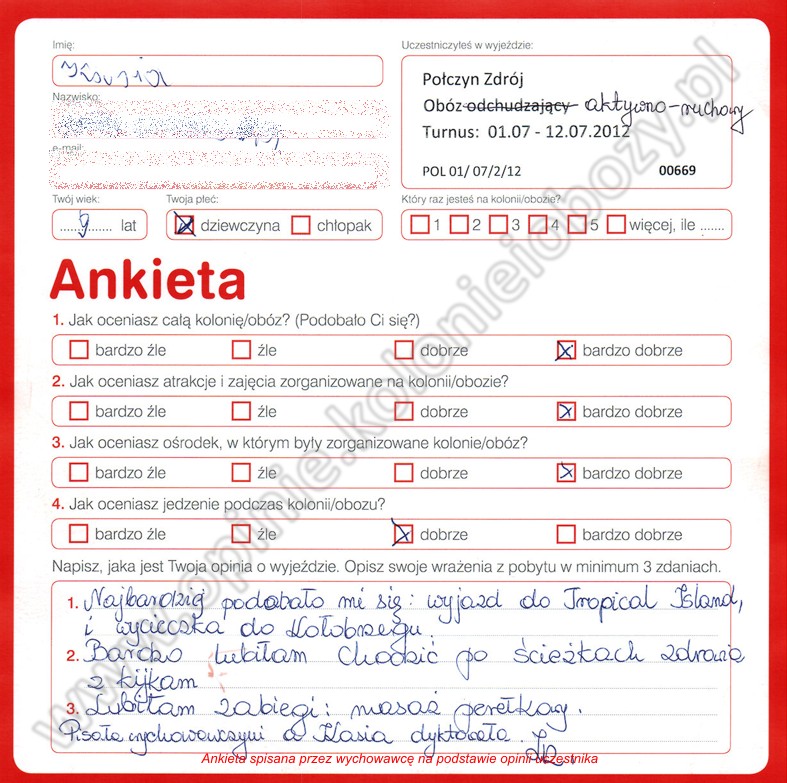 Imię:
Uczestniczyłeś w wyjeździe:
Połczyn Zdrój
Obóz odchudzający aktywno-ruchowy
Turnus: 01.07 - 12.07.2012
POL 01/ 07/2/12 00669
Nazwisko:
e-mail:
Twój wiek: Twoja płeć: Który raz jesteś na kolonii/obozie?
9 lat dziewczyna chłopak 1 2 3 4 5 więcej, ile .......
Ankieta
1. Jak oceniasz całą kolonię/obóz? (Podobało Ci się?)
bardzo źle źle dobrze bardzo dobrze
2. Jak oceniasz atrakcje i zajęcia zorganizowane na kolonii/obozie?
bardzo źle źle dobrze bardzo dobrze
3. Jak oceniasz ośrodek, w którym były zorganizowane kolonie/obóz?
bardzo źle źle dobrze bardzo dobrze
4. Jak oceniasz jedzenie podczas kolonii/obozu?
bardzo źle źle dobrze bardzo dobrze
Napisz, jaka jest Twoja opinia o wyjeździe. Opisz swoje wrażenia z pobytu w minimum 3 zdaniach.
1. Najbardziej podobało mi się: wyjazd do Tropical Island,
i wycieczka do Kołobrzegu.
2. Bardzo lubiłam chodzić po ścieżkach zdrowia
z kijkam
3. Lubiłam zabiegi: masaż perełkowy.
Pisała wychowawczyni a Kasia dyktowała.
Ankieta spisana przez wychowawcę na podstawie opinii uczestnika
www.opinie.kolonieiobozy.pl